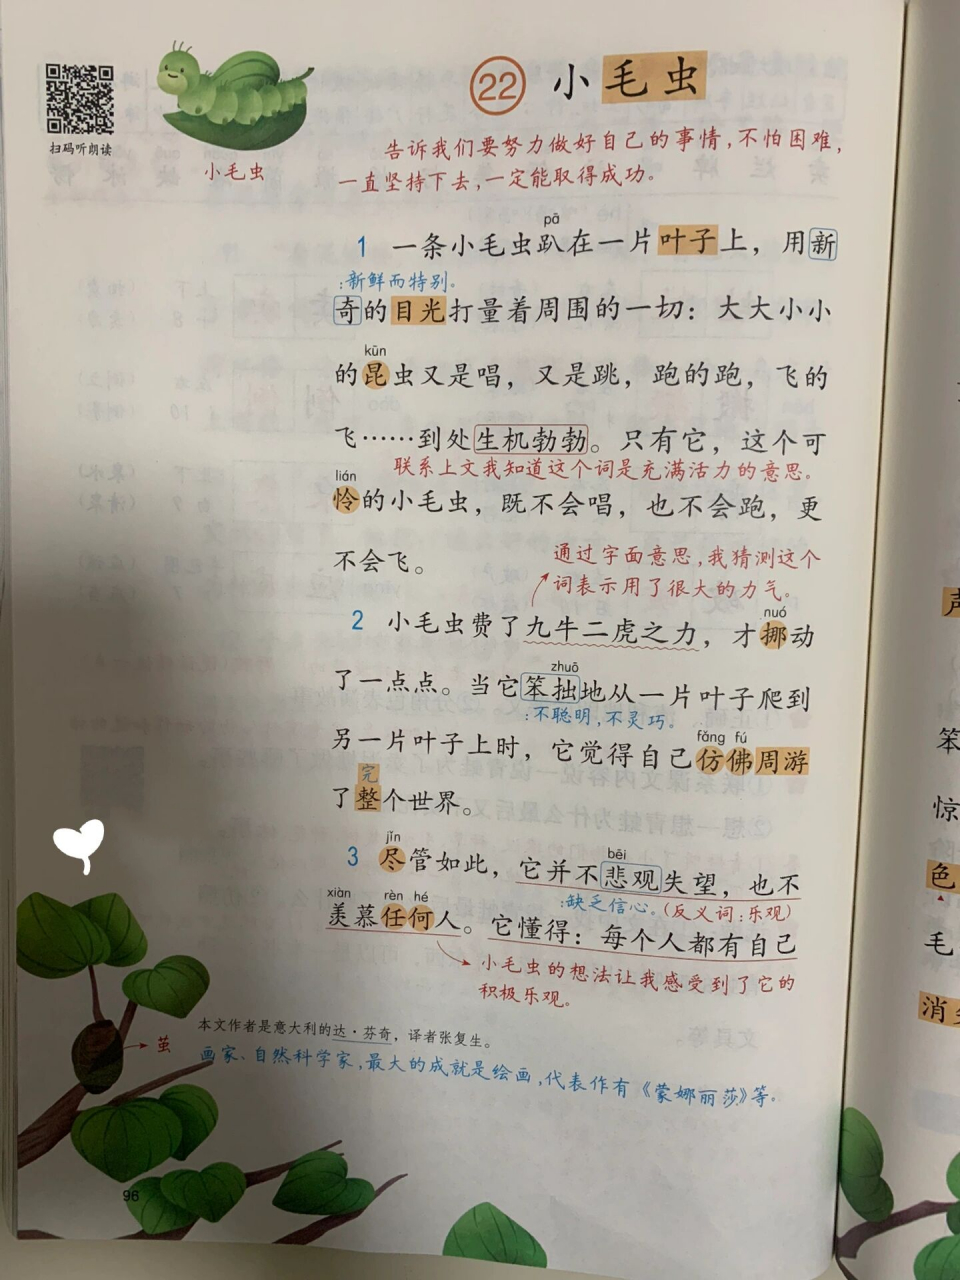 扫码听朗读
小毛虫
22 小毛虫
告诉我们要努力做好自己的事情,不怕困难,
一直坚持下去,一定能取得成功。
pā
1 一条小毛虫趴在一片叶子上，用新
:新鲜而特别。
奇的目光打量着周围的一切：大大小小
kūn
的昆虫又是唱，又是跳，跑的跑，飞的
飞……到处生机勃勃。只有它，这个可
联系上文我知道这个词是充满活力的意思。
lián
怜的小毛虫，既不会唱，也不会跑，更
不会飞。
通过字面意思,我猜测这个
词表示用了很大的力气。
nuó
2 小毛虫费了九牛二虎之力，才挪动
zhuō
了一点点。当它笨拙地从一片叶子爬到
:不聪明,不灵巧。
fǎng fú
另一片叶子上时，它觉得自己仿佛周游
完
了整个世界。
jǐn bēi
3 尽管如此，它并不悲观失望，也不
:缺乏信心。(反义词:乐观)
xiàn rèn hé
羡慕任何人。它懂得：每个人都有自己
小毛虫的想法让我感受到了它的
积极乐观。
本文作者是意大利的达·芬奇，译者张复生。
茧
画家、自然科学家,最大的成就是绘画,代表作有《蒙娜丽莎》等。
96
声
笨
惊
色
毛